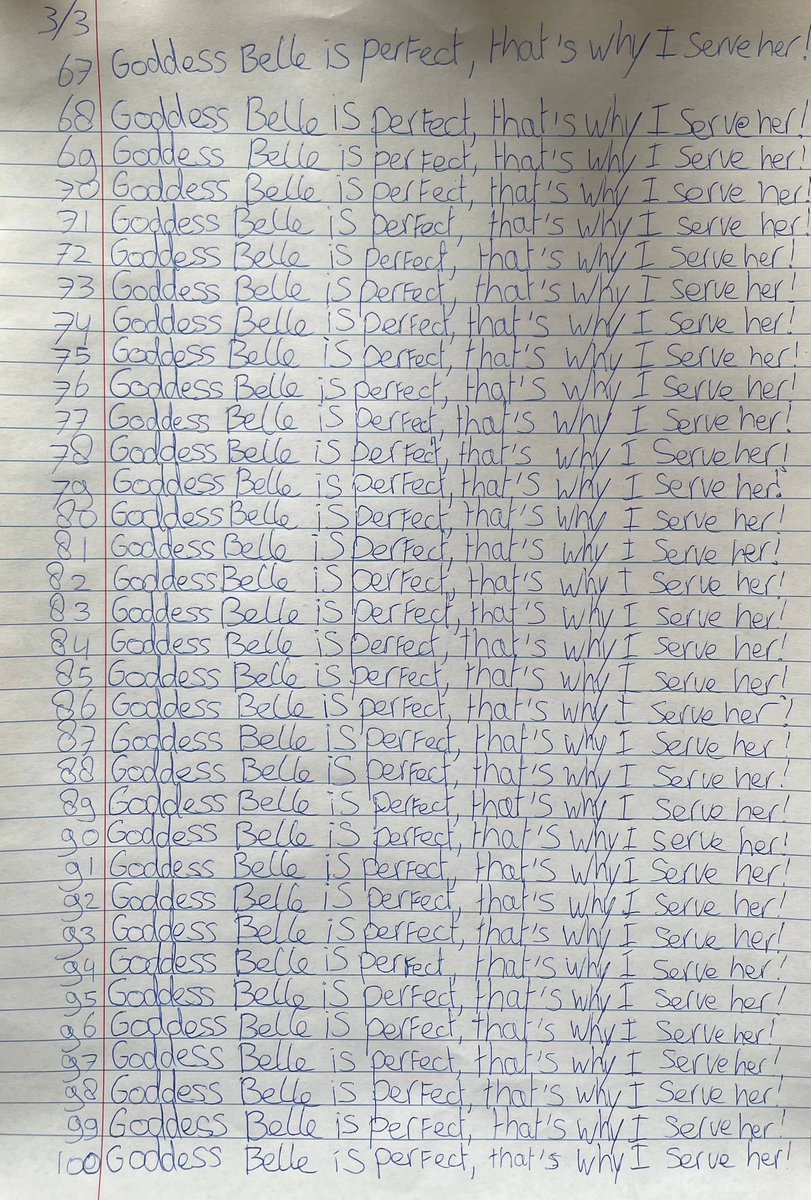 3/3
67 Goddess Belle is perfect, that's why I serve her!
68 Goddess Belle is perfect, that's why I serve her!
69 Goddess Belle is perfect, that's why I serve her!
70 Goddess Belle is perfect, that's why I serve her!
71 Goddess Belle is perfect, that's why I serve her!
72 Goddess Belle is perfect, that's why I serve her!
73 Goddess Belle is perfect, that's why I serve her!
74 Goddess Belle is perfect, that's why I serve her!
75 Goddess Belle is perfect, that's why I serve her!
76 Goddess Belle is perfect, that's why I serve her!
77 Goddess Belle is perfect, that's why I serve her!
78 Goddess Belle is perfect, that's why I serve her!
79 Goddess Belle is perfect, that's why I serve her!
80 Goddess Belle is perfect, that's why I serve her!
81 Goddess Belle is perfect, that's why I serve her!
82 Goddess Belle is perfect, that's why I serve her!
83 Goddess Belle is perfect, that's why I serve her!
84 Goddess Belle is perfect, that's why I serve her!
85 Goddess Belle is perfect, that's why I serve her!
86 Goddess Belle is perfect, that's why I serve her!
87 Goddess Belle is perfect, that's why I serve her!
88 Goddess Belle is perfect, that's why I serve her!
89 Goddess Belle is perfect, that's why I serve her!
90 Goddess Belle is perfect, that's why I serve her!
91 Goddess Belle is perfect, that's why I serve her!
92 Goddess Belle is perfect, that's why I serve her!
93 Goddess Belle is perfect, that's why I serve her!
94 Goddess Belle is perfect, that's why I serve her!
95 Goddess Belle is perfect, that's why I serve her!
96 Goddess Belle is perfect, that's why I serve her!
97 Goddess Belle is perfect, that's why I serve her!
98 Goddess Belle is perfect, that's why I serve her!
99 Goddess Belle is perfect, that's why I serve her!
100 Goddess Belle is perfect, that's why I serve her!